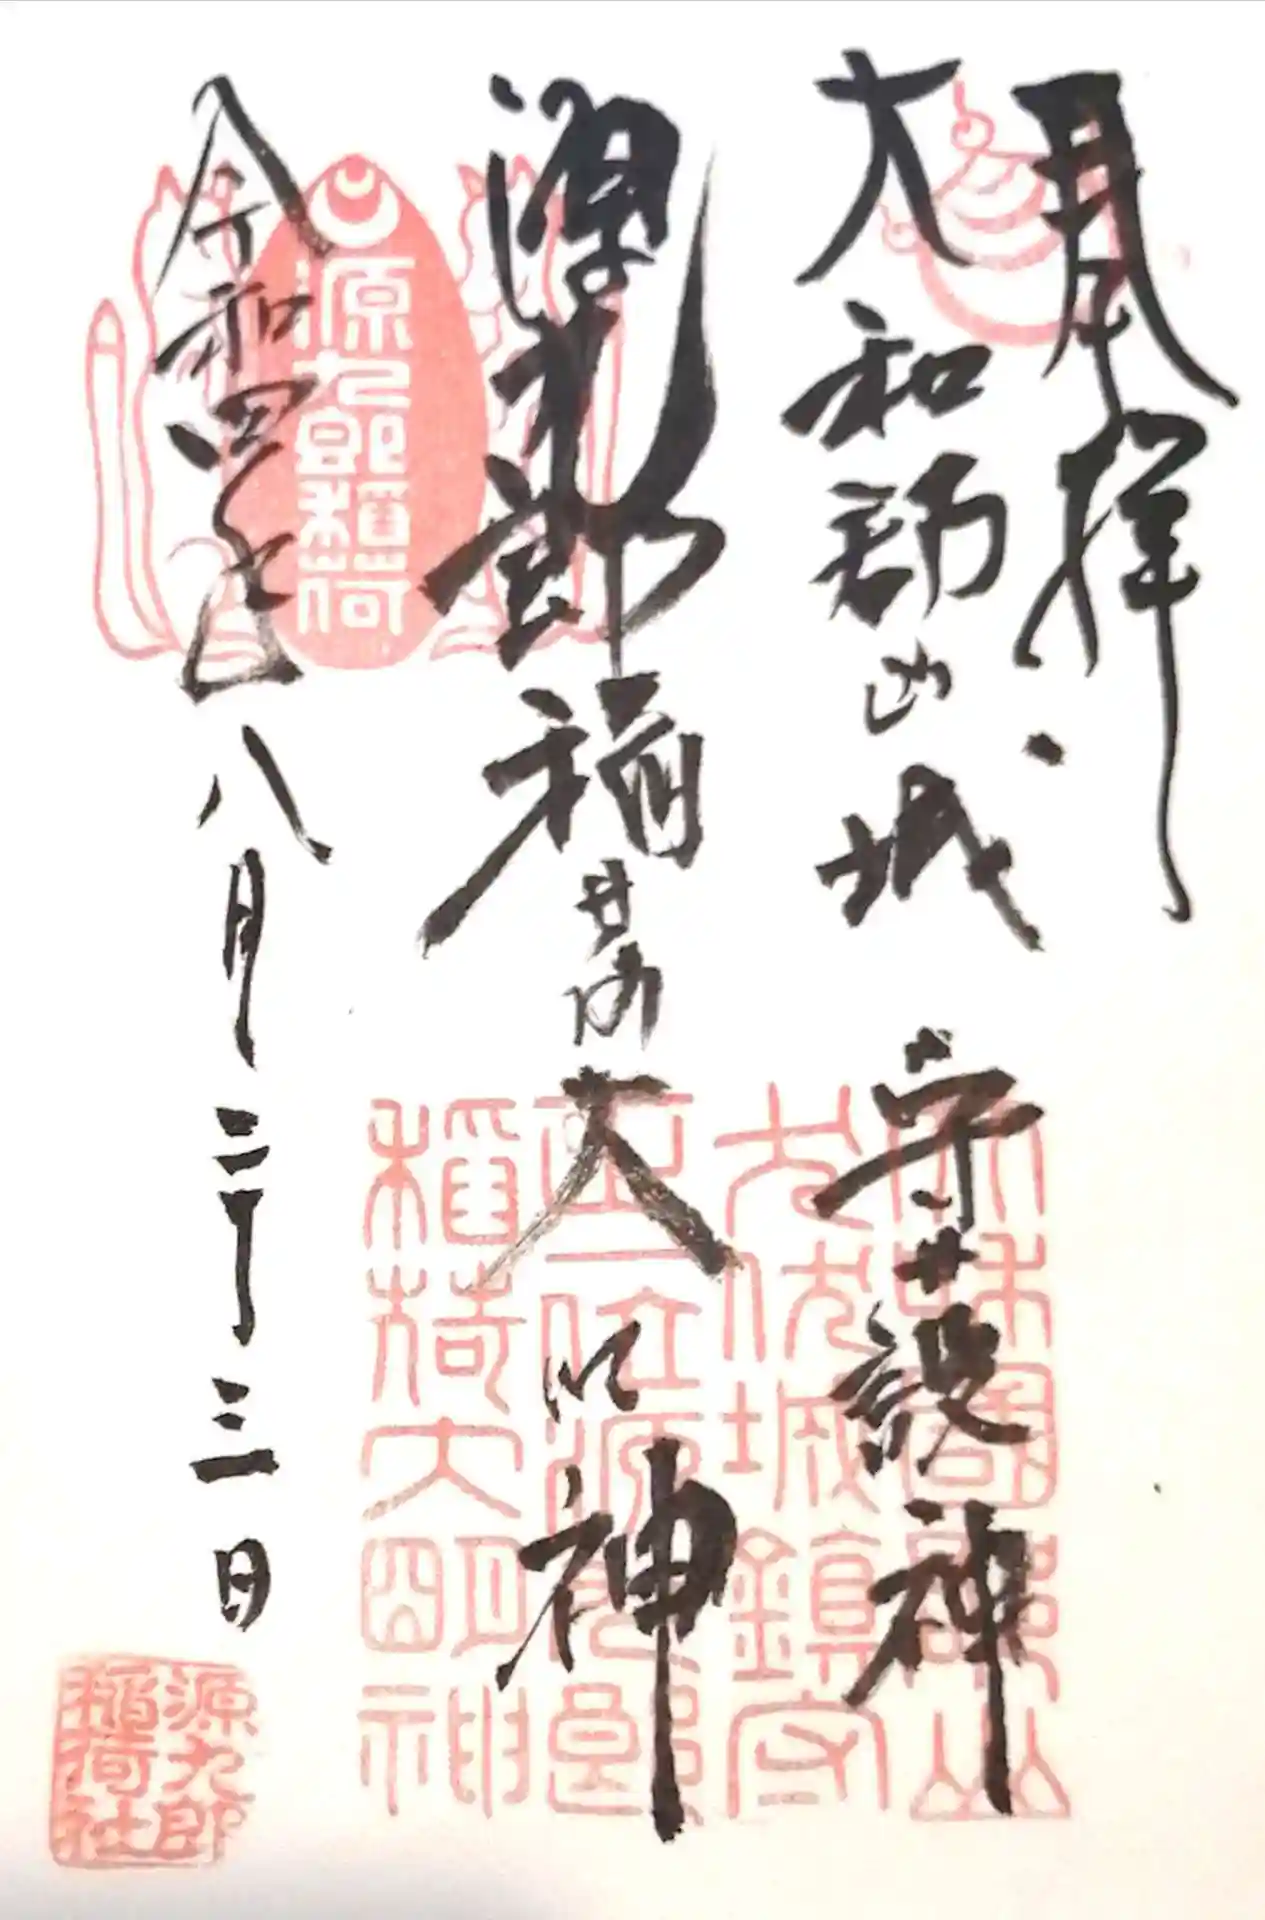 奉拝
大和郡山城 守護神
源九郎稲荷大明神
令和四年八月二十三日
源九郎稲荷
和國郡山
城鎮守
正一位源九郎
稲荷大明神
源九郎
稲荷社